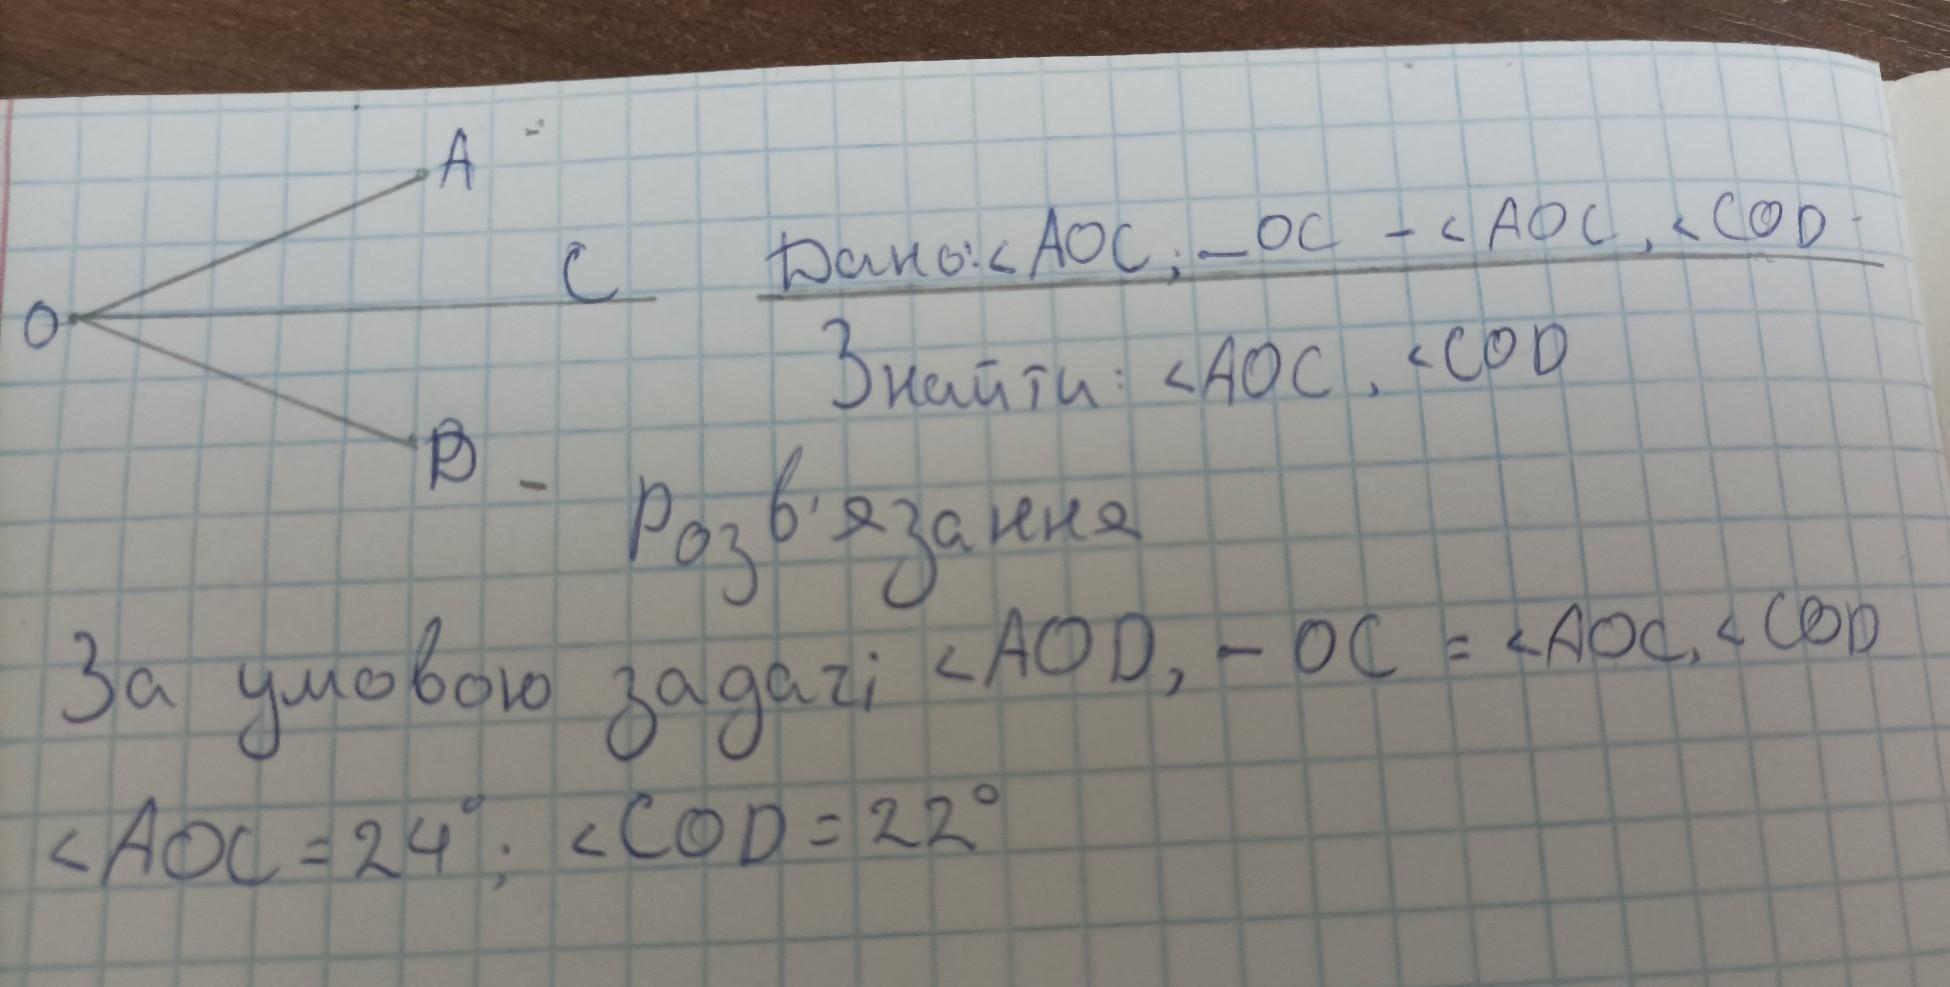 A
C
O
B
Дано: <AOC; -OC - <AOC, <COD
Знайти: <AOC, <COD
Розв'язання
За умовою задачі <AOD, - OC = <AOC, <COD
<AOC = 24°; <COD = 22°